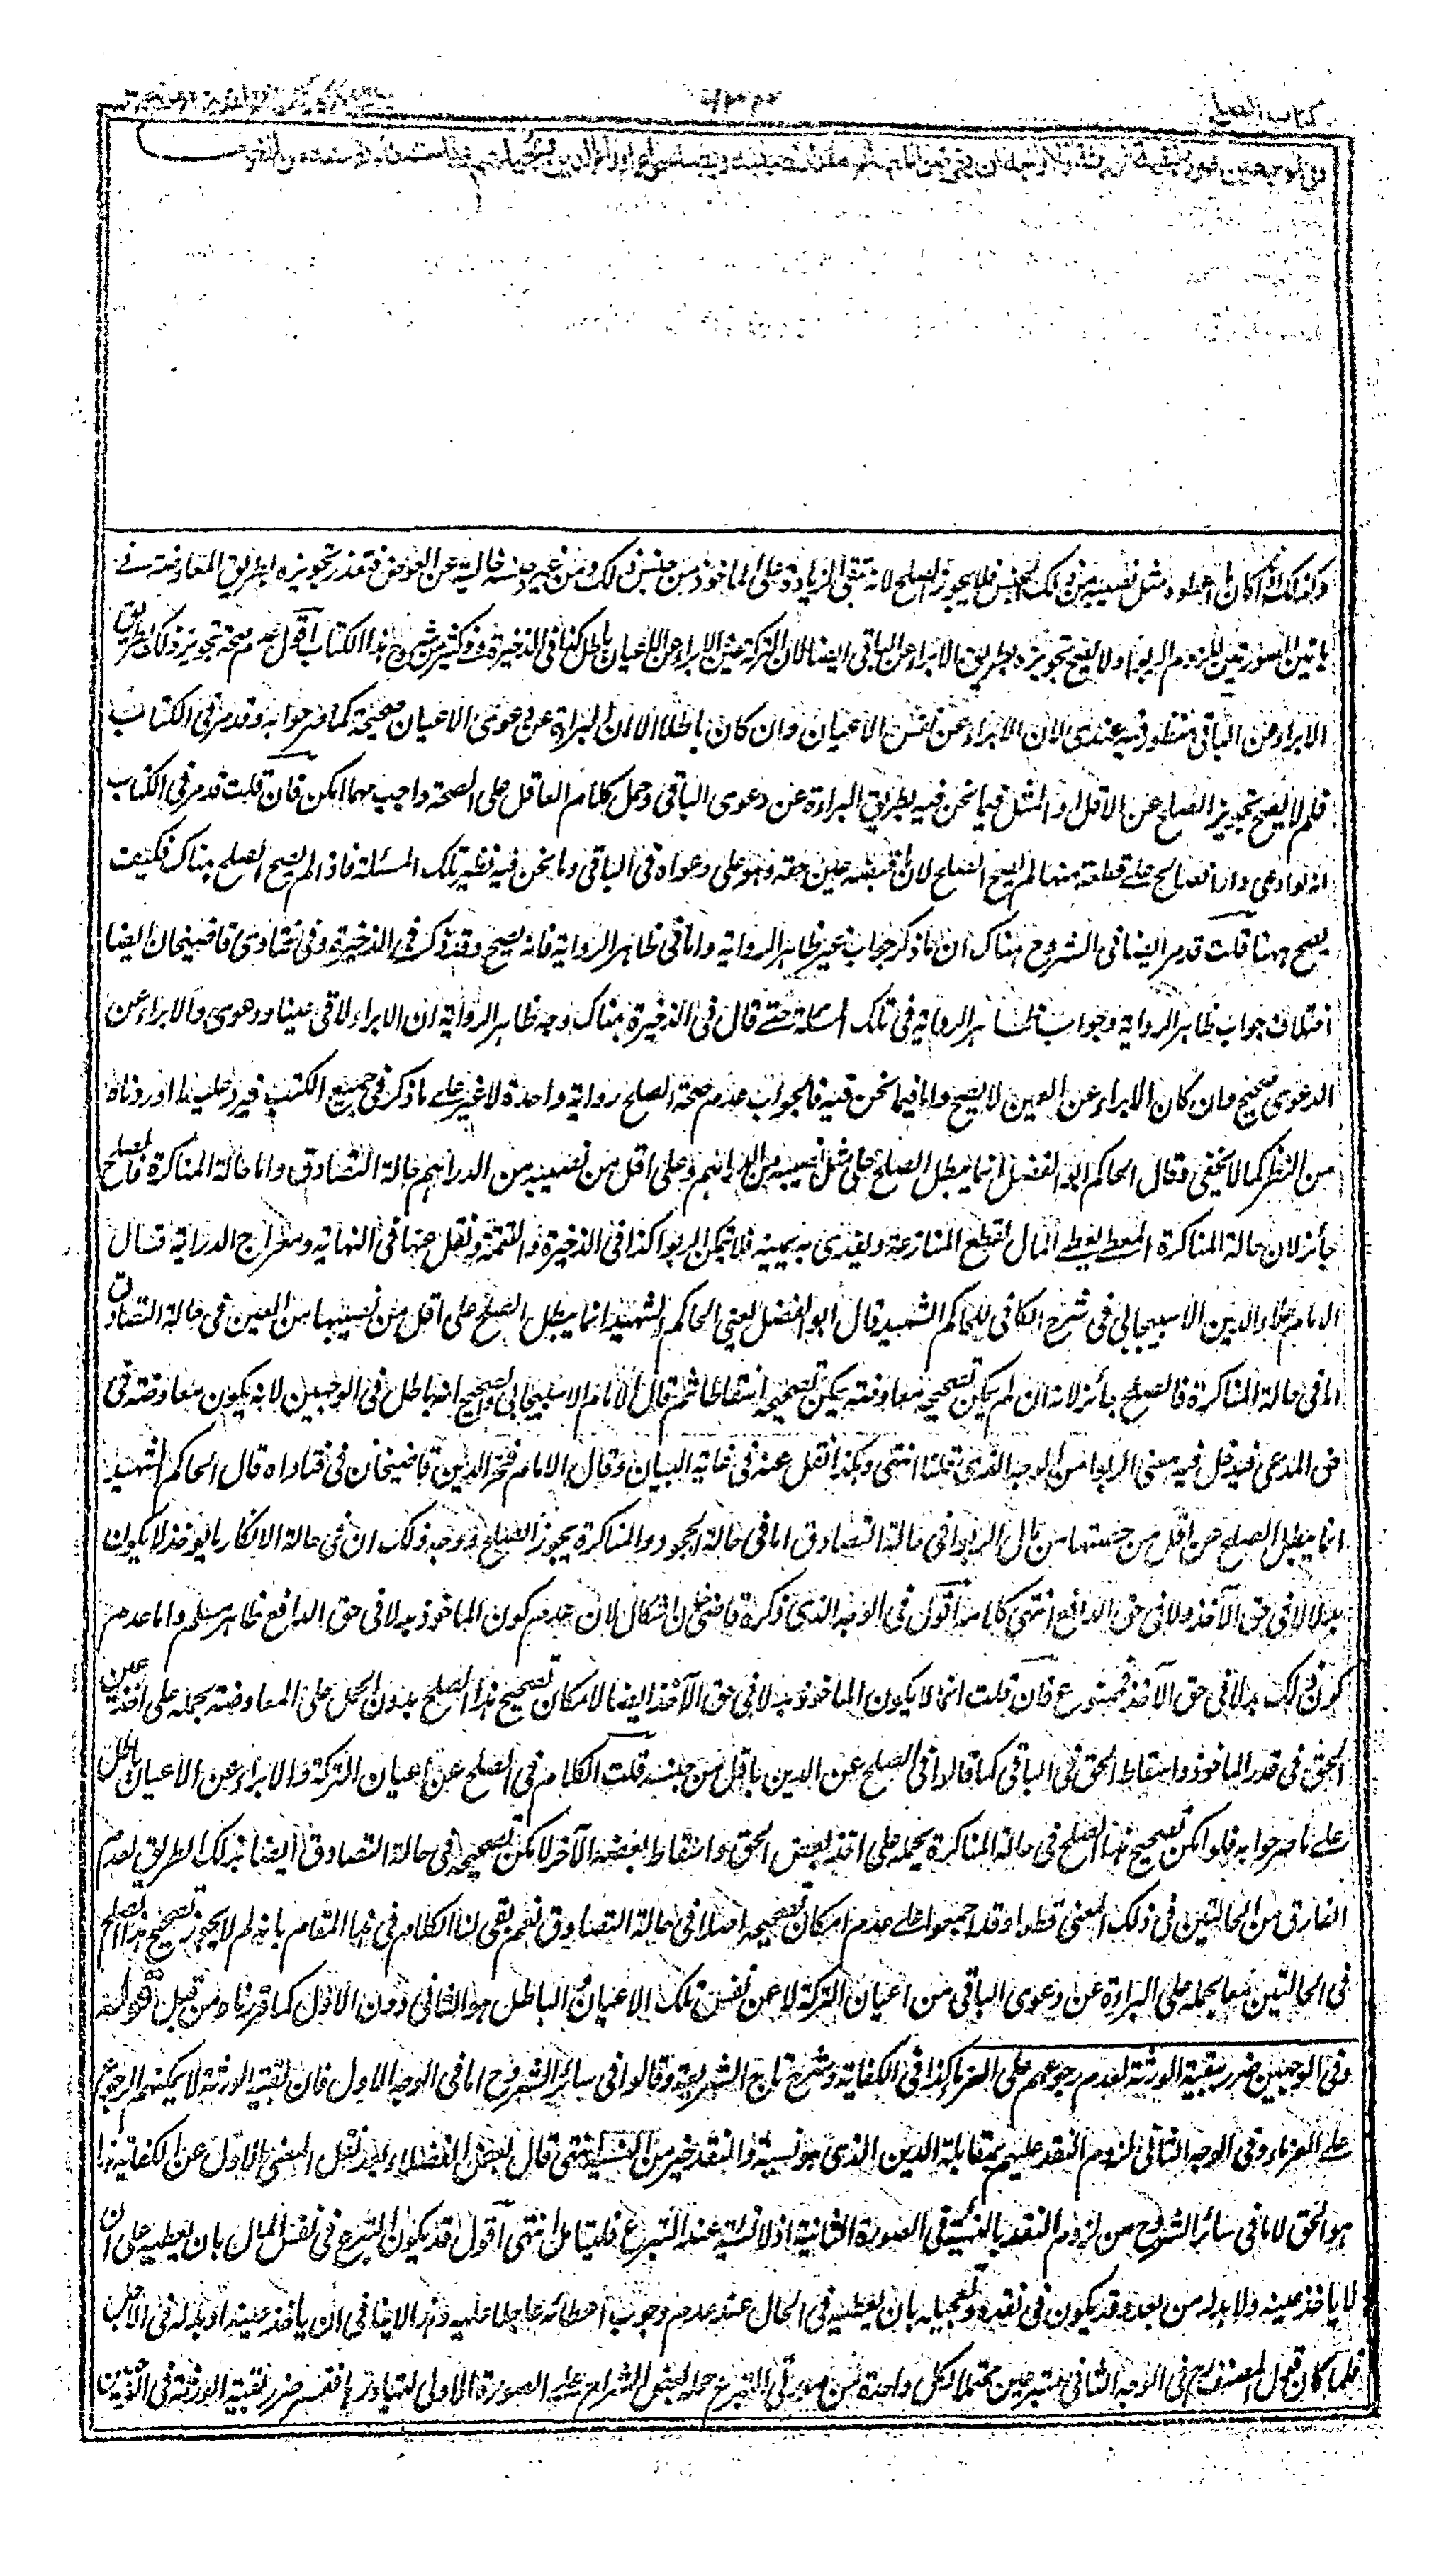 كتاب الصلح
وفي الوجهين ضرر بقية الورثة
وكذلك ان كان ما اعطوه مثل نصيبه من ذلك الجنس فلا يجوز الصلح لانه تبقى الزيادة على الماخوذ من جنس ذلك ومن غير جنسه خالية عن العوض فتعذر تجويزه بطريق المعاوضة في
هاتين الصورتين للزوم الربوا ولا يصح تجويزه بطريق الابراء عن الباقي ايضا لان التركة عين والابراء عن الاعيان باطل كذا في الذخيرة وفي كثير من شروح هذا الكتاب اقول عدم صحة تجويز ذلك بطريق
الابراء عن الباقي منظور فيه عندي لان الابراء عن نفس الاعيان وان كان باطلا الا ان البراءة عن دعوى الاعيان صحيحة كما صرحوا به وقد مر في الكتاب
فلم لا يصح تجويز الصلح عن الاقل والمثل فيما نحن فيه بطريق البراءة عن دعوى الباقي وحمل كلام العاقل على الصحة واجب مهما امكن فان قلت قد مر في الكتاب
انه لو ادعى دارا فصالح على قطعة منها لم يصح الصلح لان ما قبضه عين حقه وهو على دعواه في الباقي وما نحن فيه نظير تلك المسئلة فاذا لم يصح الصلح هناك فكيف
يصح ههنا قلت قد مر ايضا في الشروح هناك ان ما ذكر جواب غير ظاهر الرواية واما في ظاهر الرواية فانه يصح وقد ذكر في الذخيرة وفي فتاوى قاضيخان ايضا
اختلاف جواب ظاهر الرواية وجواب غير ظاهر الرواية في تلك المسئلة حتى قال في الذخيرة هناك وجه ظاهر الرواية ان الابراء لاقى عينا ودعوى والابراء عن
الدعوى صحيح وان كان الابراء عن العين لا يصح واما فيما نحن فيه فالجواب عدم صحة الصلح رواية واحدة لا غير على ما ذكر في جميع الكتب فيرد عليه ما اوردناه
من النظر كما لا يخفى وقال الحاكم ابو الفضل انما يبطل الصلح على مثل نصيبه من الدراهم وعلى اقل من نصيبه من الدراهم حالة التصادق واما حالة المناكرة فالصلح
جائز لان حالة المناكرة المعطي يعطي المال لقطع المنازعة ويفدي به يمينه فلا يتمكن الربوا كذا في الذخيرة والتتمة ونقل عنها في النهاية ومعراج الدراية قال
الامام علاء الدين الاسبيجابي في شرح الكافي للحاكم الشهيد قال ابو الفضل يعني الحاكم الشهيد انما يبطل الصلح على اقل من نصيبها من العين في حالة التصادق
اما في حالة المناكرة فالصلح جائز لانه ان لم يكن تصحيحه معاوضة يمكن تصحيحه اسقاطا ثم قال الامام الاسبيجابي والصحيح انه باطل في الوجهين لانه يكون معاوضة في
حق المدعي فيدخل فيه معنى الربوا من الوجه الذي قلنا انتهى وهكذا نقل عنه في غاية البيان وقال الامام فخر الدين قاضيخان في فتاواه قال الحاكم الشهيد
انما يبطل الصلح عن اقل من حصتها من مال الربوا في حالة التصادق اما في حالة الجحود والمناكرة يجوز الصلح ووجه ذلك ان في حالة الانكار ما يوخذ لا يكون
بدلا لا في حق الآخذ ولا في حق الدافع انتهى كلامه اقول في الوجه الذي ذكره قاضيخان اشكال لان عدم كون الماخوذ بدلا في حق الدافع ظاهر مسلم واما عدم
كون ذلك بدلا في حق الآخذ فممنوع فان قلت انما لا يكون الماخوذ بدلا في حق الآخذ ايضا لامكان تصحيح هذا الصلح بدون الحمل على المعاوضة بحمله على اخذ عين
الحق في قدر الماخوذ واسقاط الحق في الباقي كما قالوا في الصلح عن الدين باقل من جنسه قلت الكلام في الصلح عن اعيان التركة والابراء عن الاعيان باطل
على ما صرحوا به فلو امكن تصحيح هذا الصلح في حالة المناكرة بحمله على اخذ بعض الحق واسقاط بعضه الآخر لامكن تصحيحه في حالة التصادق ايضا بذلك الطريق لعدم
الفارق من الحالتين في ذلك المعنى قطعا وقد اجمعوا على عدم امكان تصحيحه اصلا في حالة التصادق نعم بقي لنا الكلام في هذا المقام بانه لم لا يجوز تصحيح هذا الصلح
في الحالتين معا بحمله على البراءة عن دعوى الباقي من اعيان التركة لا عن نفس تلك الاعيان والباطل هو الثاني دون الاول كما قررناه من قبل قوله
وفي الوجهين ضرر ببقية الورثة لعدم رجوعهم على الغرماء كذا في الكفاية وشرح تاج الشريعة وقالوا في سائر الشروح اما في الوجه الاول فان بقية الورثة لا يمكنهم الرجوع
على الغرماء وفي الوجه الثاني لزوم النقد عليهم بمقابلة الدين الذي هو نسيئة والنقد خير من النسيئة انتهى قال بعض الفضلاء بعد نقل المعنى الاول عن الكفاية هذا
هو الحق لا ما في سائر الشروح من لزوم النقد بالنسيئة في الصورة الثانية اذ لا نسيئة عند التبرع فليتامل انتهى اقول قد يكون التبرع في نفس المال بان يعطيه على ان
لا ياخذ عينه ولا بدله من بعد وقد يكون في نقده وتعجيله بان يعطيه في الحال عند عدم وجوب اعطائه عاجلا عليه وهذا لا ينافي ان ياخذ عينه او بدله في الآجل
فلما كان قول المصنف رح في الوجه الثاني متبرعين محتملا لكل واحدة من صورتي التبرع حمله بعض الشراح على الصورة الاولى لتبادرها ففسر ضرر بقية الورثة في الوجهين